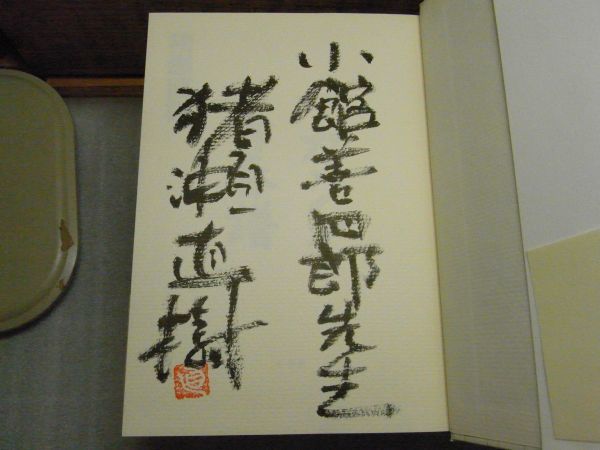 小館善四郎先生
猪瀬直樹
直